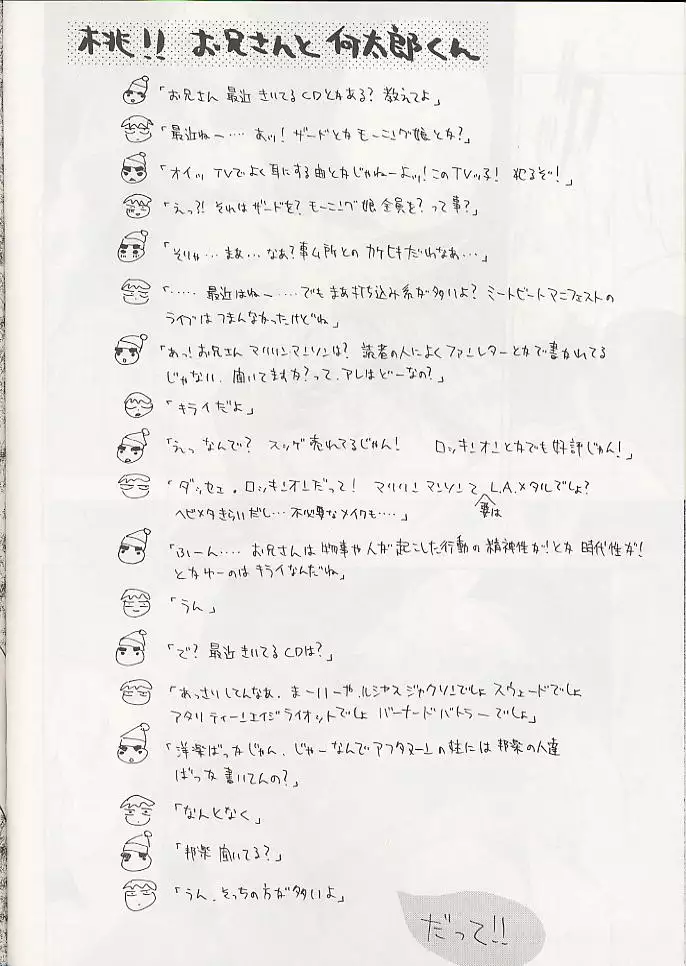 桃!! お兄さんと何太郎くん
「お兄さん 最近きいてるCDとかある? 教えてよ」
「最近ねー…‥ あッ! ザードとかモーニング娘とか?」
「オイッ TVでよく耳にする曲とかじゃねーよッ! このTVッ子! 犯るぞ!」
「えっ?! それはザードを? モーニング娘全員を? って事?」
「そりゃ…まあ…なあ? 事ム所とのカケヒキだわなあ…」
「‥‥‥ 最近はねー ‥‥‥でもまあ打ち込み系が多いよ? ミートビートマニフェストの
ライブはつまんなかったけどね」
「あっ! お兄さん マリリンマンソンは? 読者の人によくファンレターとかで書かれてる
じゃない、聞いてますか? って、アレはどーなの?」
「キライだよ」
「えっ なんで? スッゲ売れてるじゃん! ロッキンオンとかでも好評じゃん!」
「ダッセェ。ロッキンオンだって! マリリンマンソンて要はL.A.メタルでしょ?
ヘビメタきらいだし…不必要なメイクも‥‥」
「ふーん‥‥ お兄さんは物事や人が起こした行動の精神性が! とか 時代性が!
とかゆーのはキライなんだね」
「うん」
「で? 最近きいてるCDは?」
「あっさりしてんなあ、まーいーや、ルシャスジャクソンでしょ スウェードでしょ
アタリティーンエイジライオットでしょ バーナードバトラーでしょ」
「洋楽ばっかじゃん、じゃーなんでアフタヌーンの柱には邦楽の人達
ばっか書いてんの?」
「なんとなく」
「邦楽 聞いてる?」
「うん、そっちの方が多いよ」
だって!!